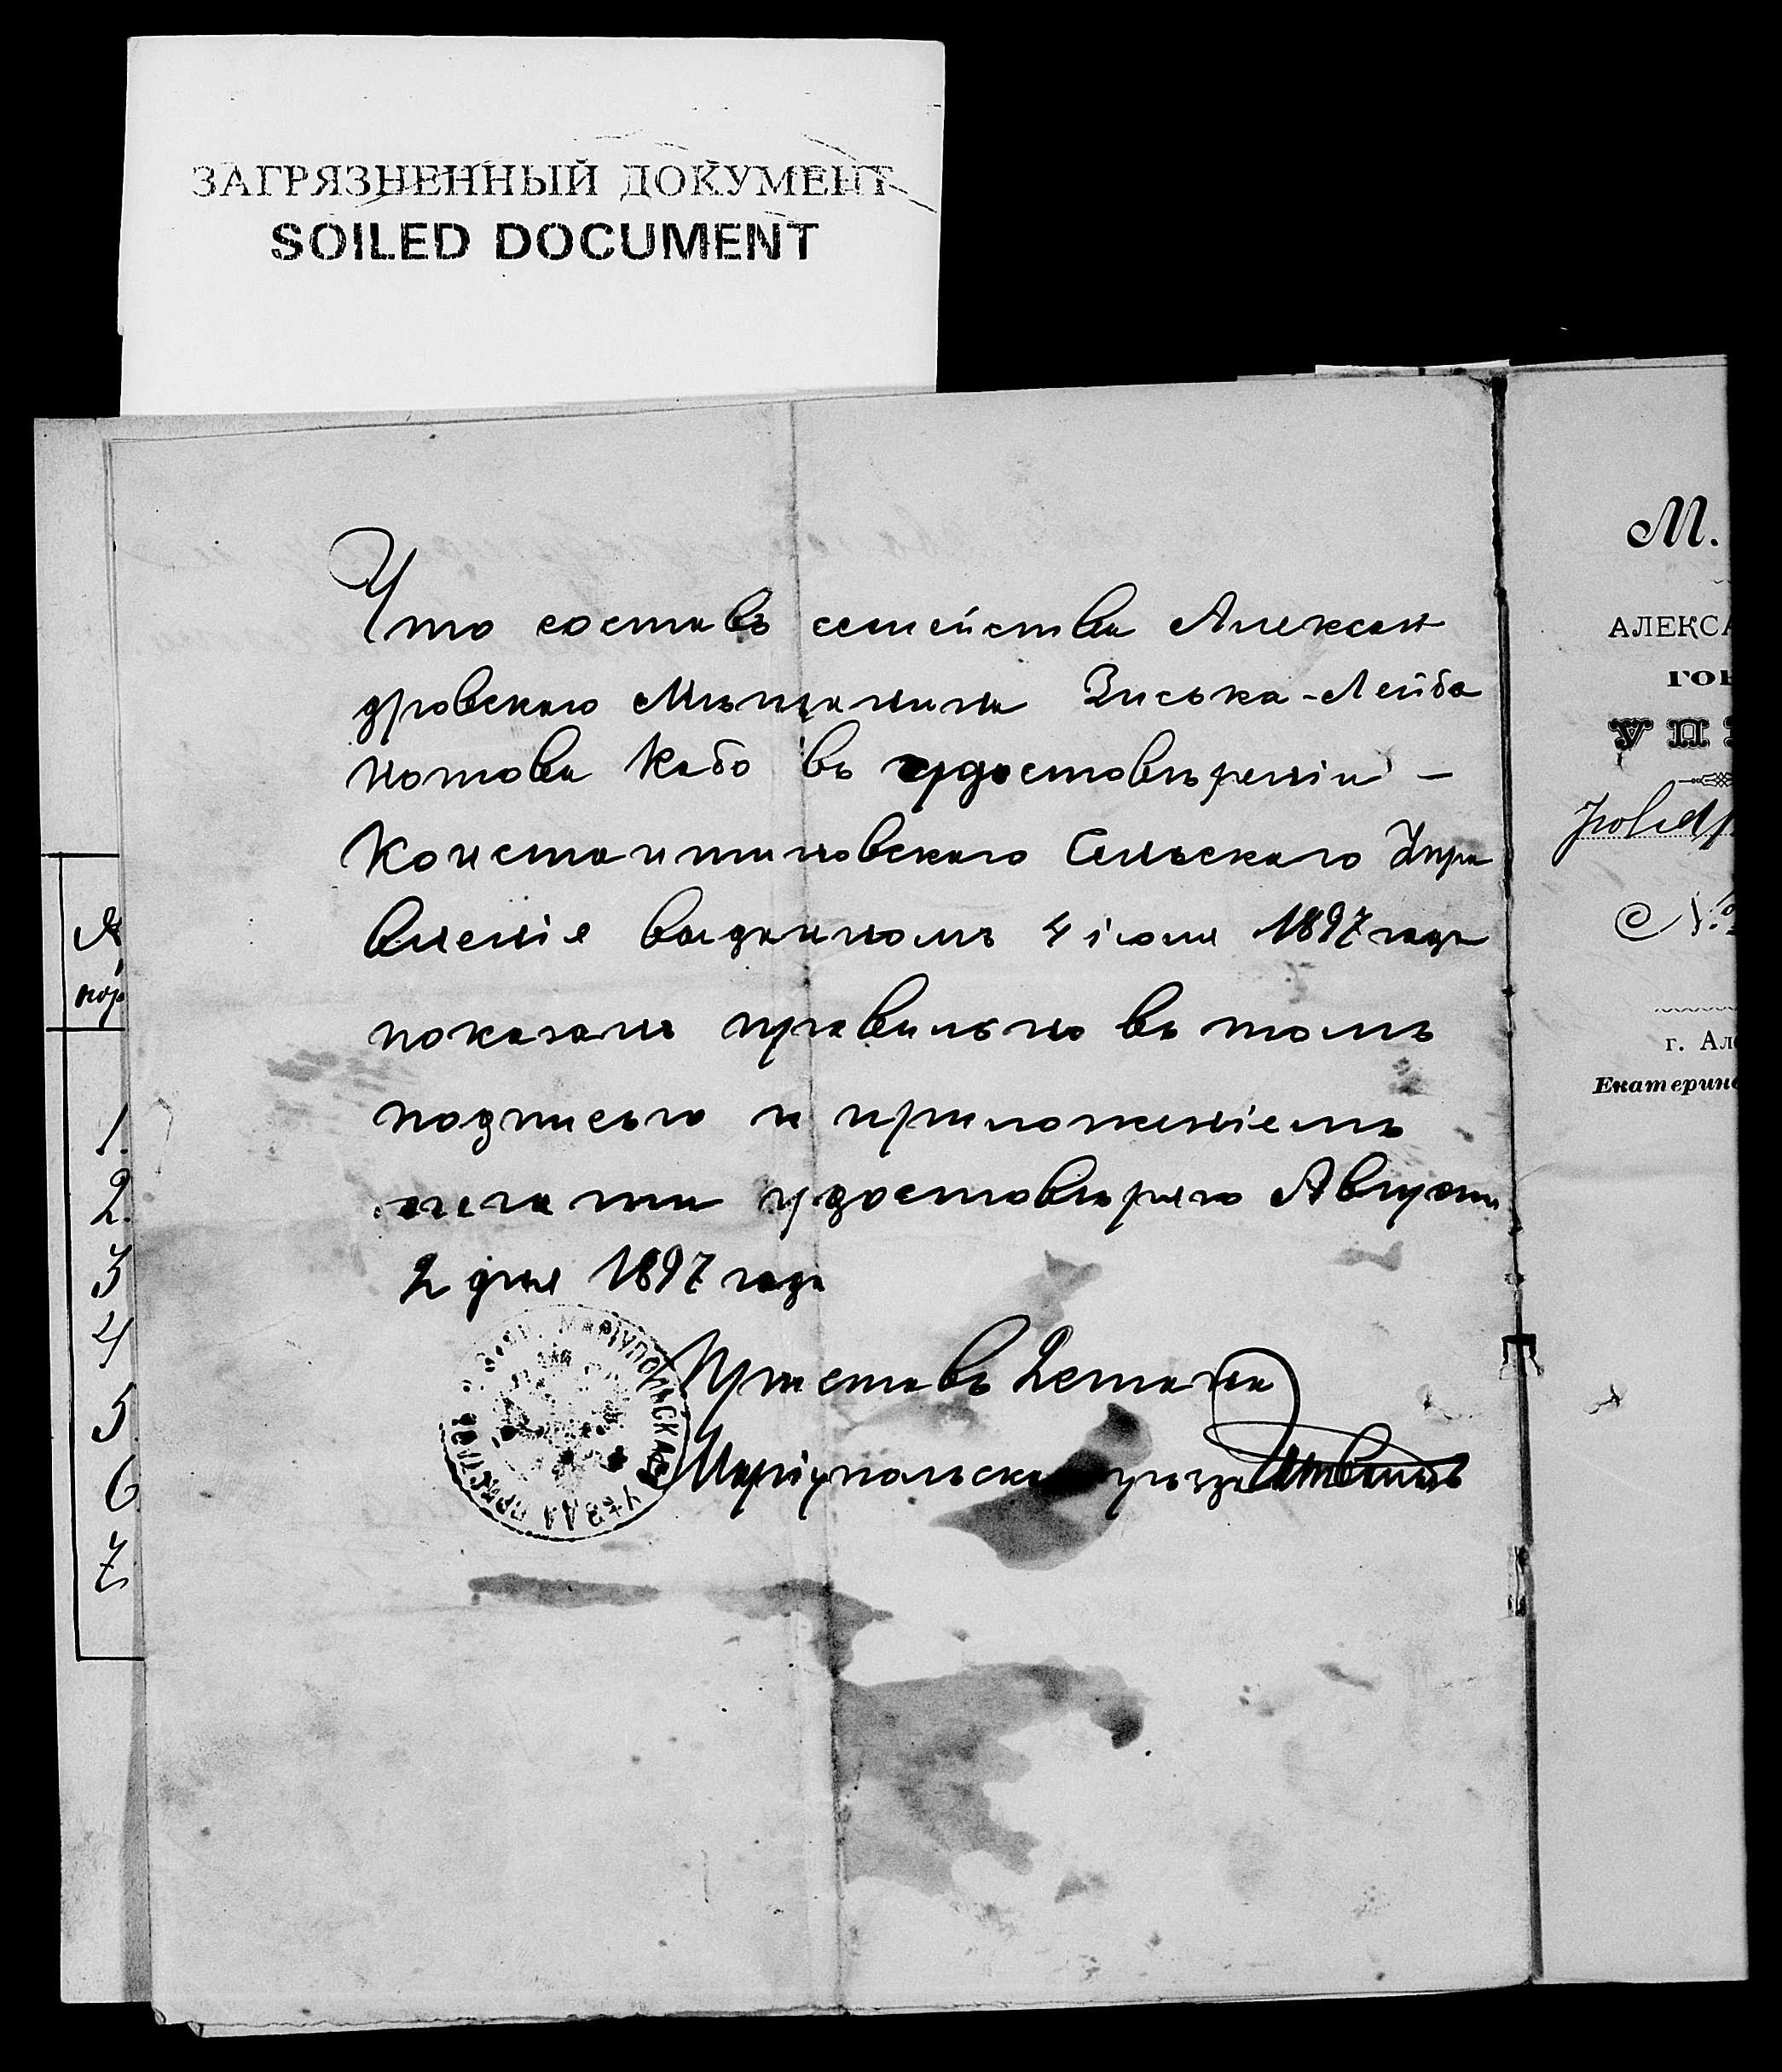 ЗАГРЯЗНЕННЫЙ ДОКУМЕНТ
SOILED DOCUMENT
Что составъ семейства Алексан
дровскаго Мѣщанина Зиська-Лейба
Нотова Кабо въ удостовѣреніи –
Константиновскаго Сельскаго Упра
вленія выданномъ 4 іюля 1897 года
показанъ правильно въ томъ
подписью и приложеніемъ
печати удостовѣряю Августа
2 дня 1897 года
Приставъ 2 стана
Маріупольска уѣзда
МАРІУПОЛЬСКАГО УѢЗДА ПРИСТАВЪ
№
пор
1.
2.
3
4
5
6
7
М.
АЛЕКСА
ГОР
УПР
№
г. Але
Екатерино